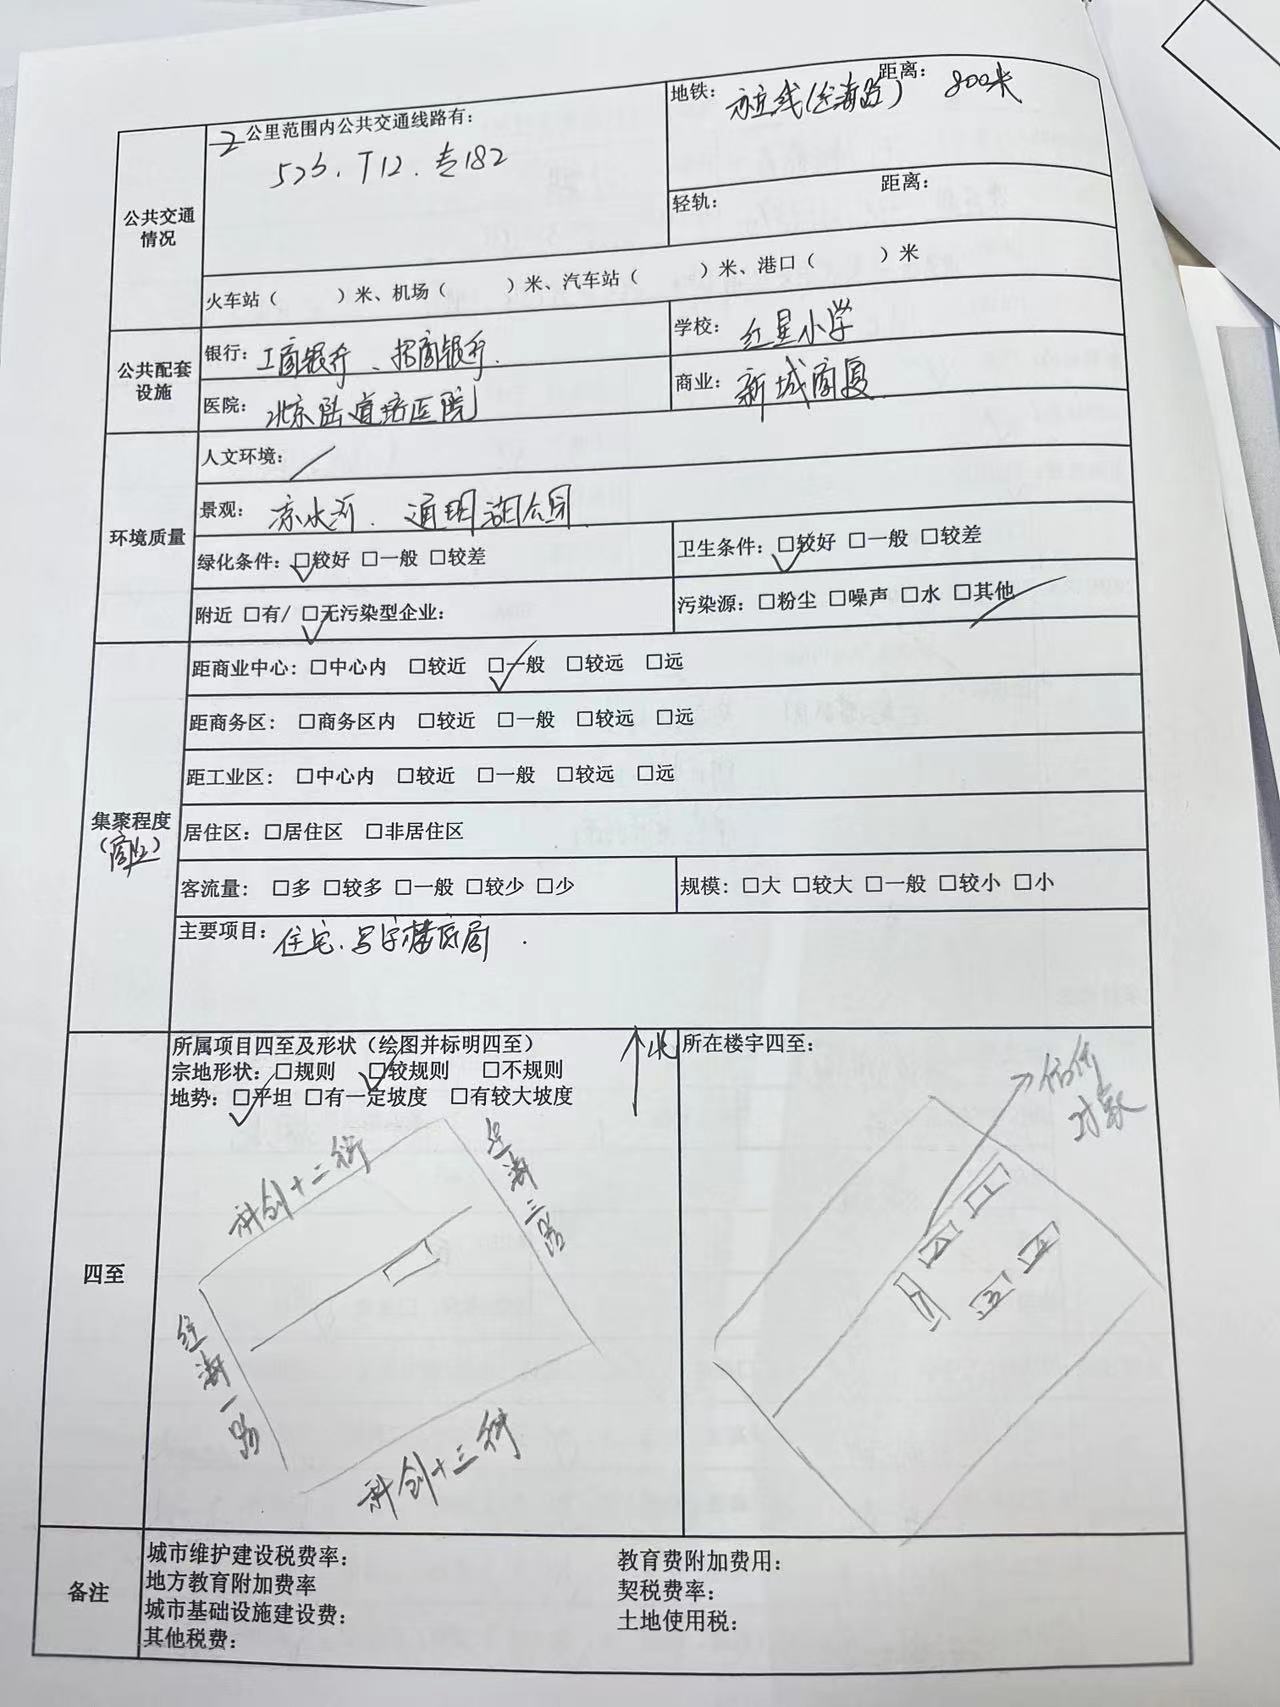 2公里范围内公共交通线路有：
526、T12、专182
地铁：亦庄线（经海路） 距离：800米
轻轨： 距离：
公共交通
情况
火车站（ ）米、机场（ ）米、汽车站（ ）米、港口（ ）米
公共配套
设施
银行：工商银行、招商银行.
学校：红星小学
医院：北京陆道培医院
商业：新城商厦
环境质量
人文环境：
景观：凉水河、通明湖公园
绿化条件：☑较好 □一般 □较差
卫生条件：☑较好 □一般 □较差
附近 □有/ ☑无污染型企业：
污染源：□粉尘 □噪声 □水 □其他
集聚程度
（商业）
距商业中心：□中心内 □较近 ☑一般 □较远 □远
距商务区： □商务区内 □较近 □一般 □较远 □远
距工业区： □中心内 □较近 □一般 □较远 □远
居住区：□居住区 □非居住区
客流量： □多 □较多 □一般 □较少 □少
规模：□大 □较大 □一般 □较小 □小
主要项目：住宅、写字楼底商.
四至
所属项目四至及形状（绘图并标明四至）
宗地形状：□规则 ☑较规则 □不规则
地势：☑平坦 □有一定坡度 □有较大坡度
北
科创十二街
经海三路
经海一路
科创十三街
所在楼宇四至：
估价
对象
1
2
3
4
备注
城市维护建设税费率：
教育费附加费用：
地方教育附加费率
契税费率：
城市基础设施建设费：
土地使用税：
其他税费：